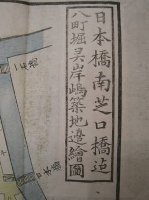 日本橋南芝口橋迠
八町堀㚑岸嶋築地邉繪圖